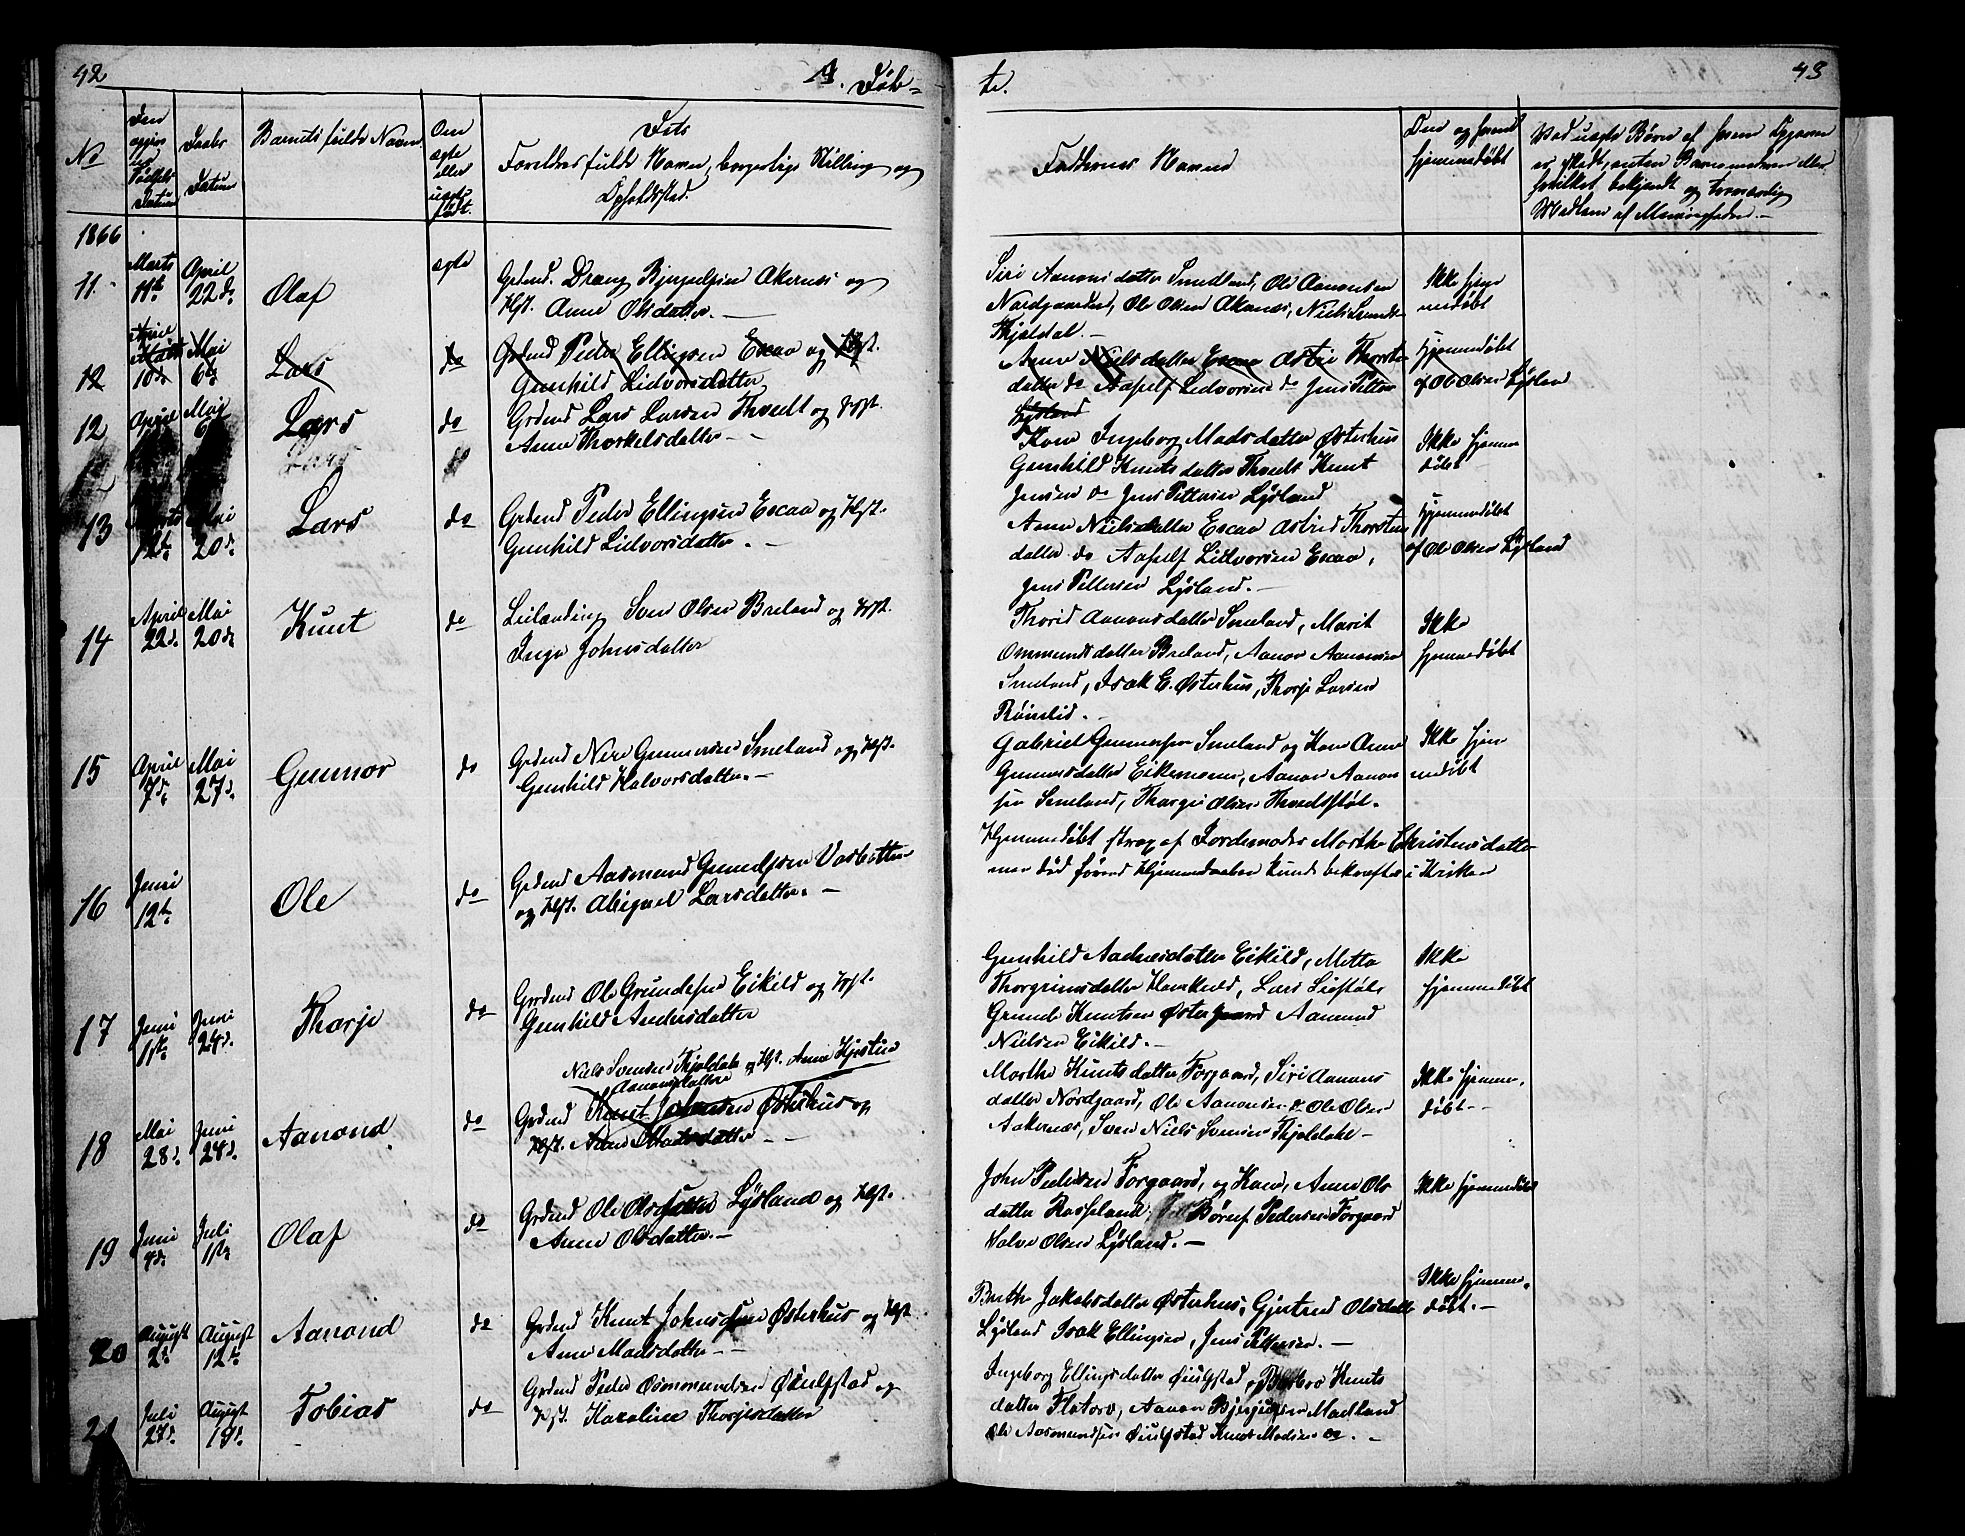 42
A. Føb-
No
Den
opgivne
Fødsels
Datum
Daabs
Datum
Barnets fulde Navn
Om
ægte
eller
uægte
født.
Dets
Forældres fulde Navn, borgerlige Stilling og
Opholdssted.
1866
11.
Marts
11te
April
22de
Olaf
ægte
Grdmd. Dreng Bjørgulfsen Akernæs og
Hst. Anne Olsdatter.
12
10de
Mai
6te
Lars
do
Grdmd Peder Ellingsen Escaa og Hst.
Gunhild Lidvorsdatter
12
April
Mai
6
Lars
do
Grdmd Lars Larsen Thvedt og Hst.
Anne Thorkelsdatter
Lars
13
Marts
12te
Mai
20de
Lars
do
Grdmd Peder Ellingsen Escaa og Hst.
Gunhild Lidvorsdatter.
14
April
22de
Mai
20de
Knut
do
Leilænding Sven Olsen Breland og Hst.
Inge Johnsdatter
15
April
7de
Mai
27de
Gunnor
do
Grdmd Nere Gunnersen Smeland og Hst.
Gunhild Halvorsdatter.
16
Juni
12te
Ole
do
Grdmd Aasmund Gundersen Vasbotten
og Hst. Abigael Larsdatter.
17
Juni
11te
Juni
24de
Thorje
do
Grdmd Ole Grundesen Eikild og Hst.
Gunhild Andersdatter
Niels Svensen Fjeldale og Hst. Anne Kjestine
Aanonsdatter
18
Mai
28de
Juni
24de
Aanond
do
Grdmd Knut Johnsen Østerhus og
Hst. Anne Madsdatter
19
Juni
4de
Juli
1ste
Olaf
do
Grdmd Ole Olsen Lysland og Hst.
Anne Olsdatter.
20
August
2de
August
12te
Aanond
do
Grdmd Knut Johnsen Østerhus og Hst
Anne Madsdatter
21
Juli
27de
August
19de
Tobias
do
Grdmd Peder Osmomundsen Øiulfstad og
Hst. Karoline Thorjesdatter
te.
43
Faddernes Navne
Om og hvem
hjemmedøbt
Ved uægte Børn af hvem Opgaven
er skedt, enten Barnemoderen eller
hvilket bekjendt og troværdig
Medlem af Menigheden.
Siri Aanonsdatter Smedland, Ole Aanonsen
Nordgaarden, Ole Olsen Akernæs, Niels Svends
Fjeldal.
Ikke hjem
medøbt
Anne Nielsdatter Escaa Astri Thorsten
datter do Aasulf Lidvorsen do Jens Petter
Lysland
Hjemmedøbt
af Ole Olsen Lysland
Kone Ingeborg Madsdatter Østerhus
Gunhild Knutsdatter Thvedt Knut
Jensen do Jens Pettersen Lysland
Ikke hjemme
døbt
Anne Nielsdatter Escaa Astrid Thorsten
datter do Aasulf Lidvorsen Escaa,
Jens Pettersen Lysland.
Hjemmedøbt
af Ole Olsen Lysland
Thorid Aanonsdatter Smeland, Marit
Ommundsdatter Breland, Aanon Aanonsen
Smeland, Isak E. Østerhus, Thorje Larsen
Røinlid.
Ikke
hjemmedøbt
Gabriel Gunnersen Smeland og Kone Anne
Gunnersdatter Eikernæsen, Aanon Aanon
sen Smeland, Thorgie Olsen Thvedtstøl.
Ikke hjem
medøbt
Hjemmedøbt strax af Jordemoder Marthe Christensdatter
men død førend Hjemmedaaben kunde bekræftes i Kirken
Gunhild Aadnesdatter Eikild, Mette
Thorgrimsdatter Homkvæd, Lars Ljosstøle
Grunde Knutsen Østergaard Aamund
Nielsen Eikild.
Ikke
hjemmedøbt
Marthe Knutsdatter Forgaard, Siri Aanons
datter Nordgaard, Ole Aanonsen do Ole Olsen
Aakernæs, Sven Niels Svensen Fjeldale
Ikke hjemme
døbt
John Pedersen Forgaard, og Kone, Anne Ols
datter Rosseland, Børuf Pedersen Forgaard
Halvor Olsen Lysland.
Ikke hjemmedøbt
Berthe Jakobsdatter Østerhus, Gjertrud Olsdatter
Lysland Isak Ellingsen, Jens Pettersen.
Ikke hjemme-
døbt.
Ingeborg Ellingsdatter Øiulfstad, Barbro Knuts
datter Flotore, Aanon Bjørgufsen Madland
Ole Aasmundsen Øiulfstad Knut Madsen do.